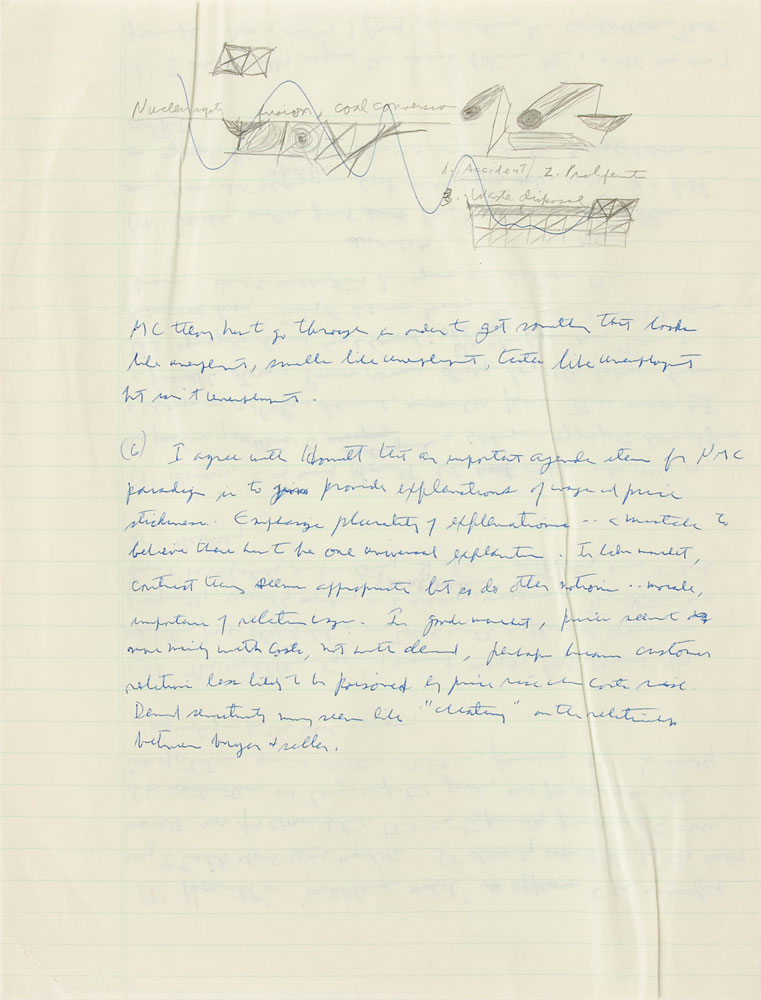 Nuclear fusion, coal conversion
1. Accident 2. Prolif
3. Waste disposal
MC theory has to go through in order to get something that looks
like unemployment, smells like unemployment, tastes like unemployment
but isn't unemployment.
(6) I agree with Howitt that an important agenda item for NMC
paradigm is to provide explanations of wage and price
stickiness. Emphasize plurality of explanations -- a mistake to
believe there has to be one universal explanation. In labor market,
contract theory seems appropriate but so do other notions -- morale,
importance of relative wages. In goods market, prices seem to
move mainly with costs, not with demand, perhaps because customer
relations less likely to be poisoned by price rise when costs rise.
Demand sensitivity may seem like "cheating" on the relationship
between buyer & seller.